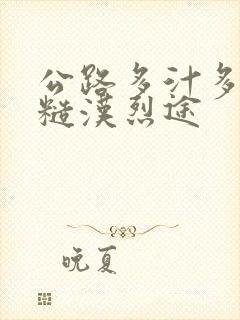 公路多汁多
糙漢烈途
晚夏